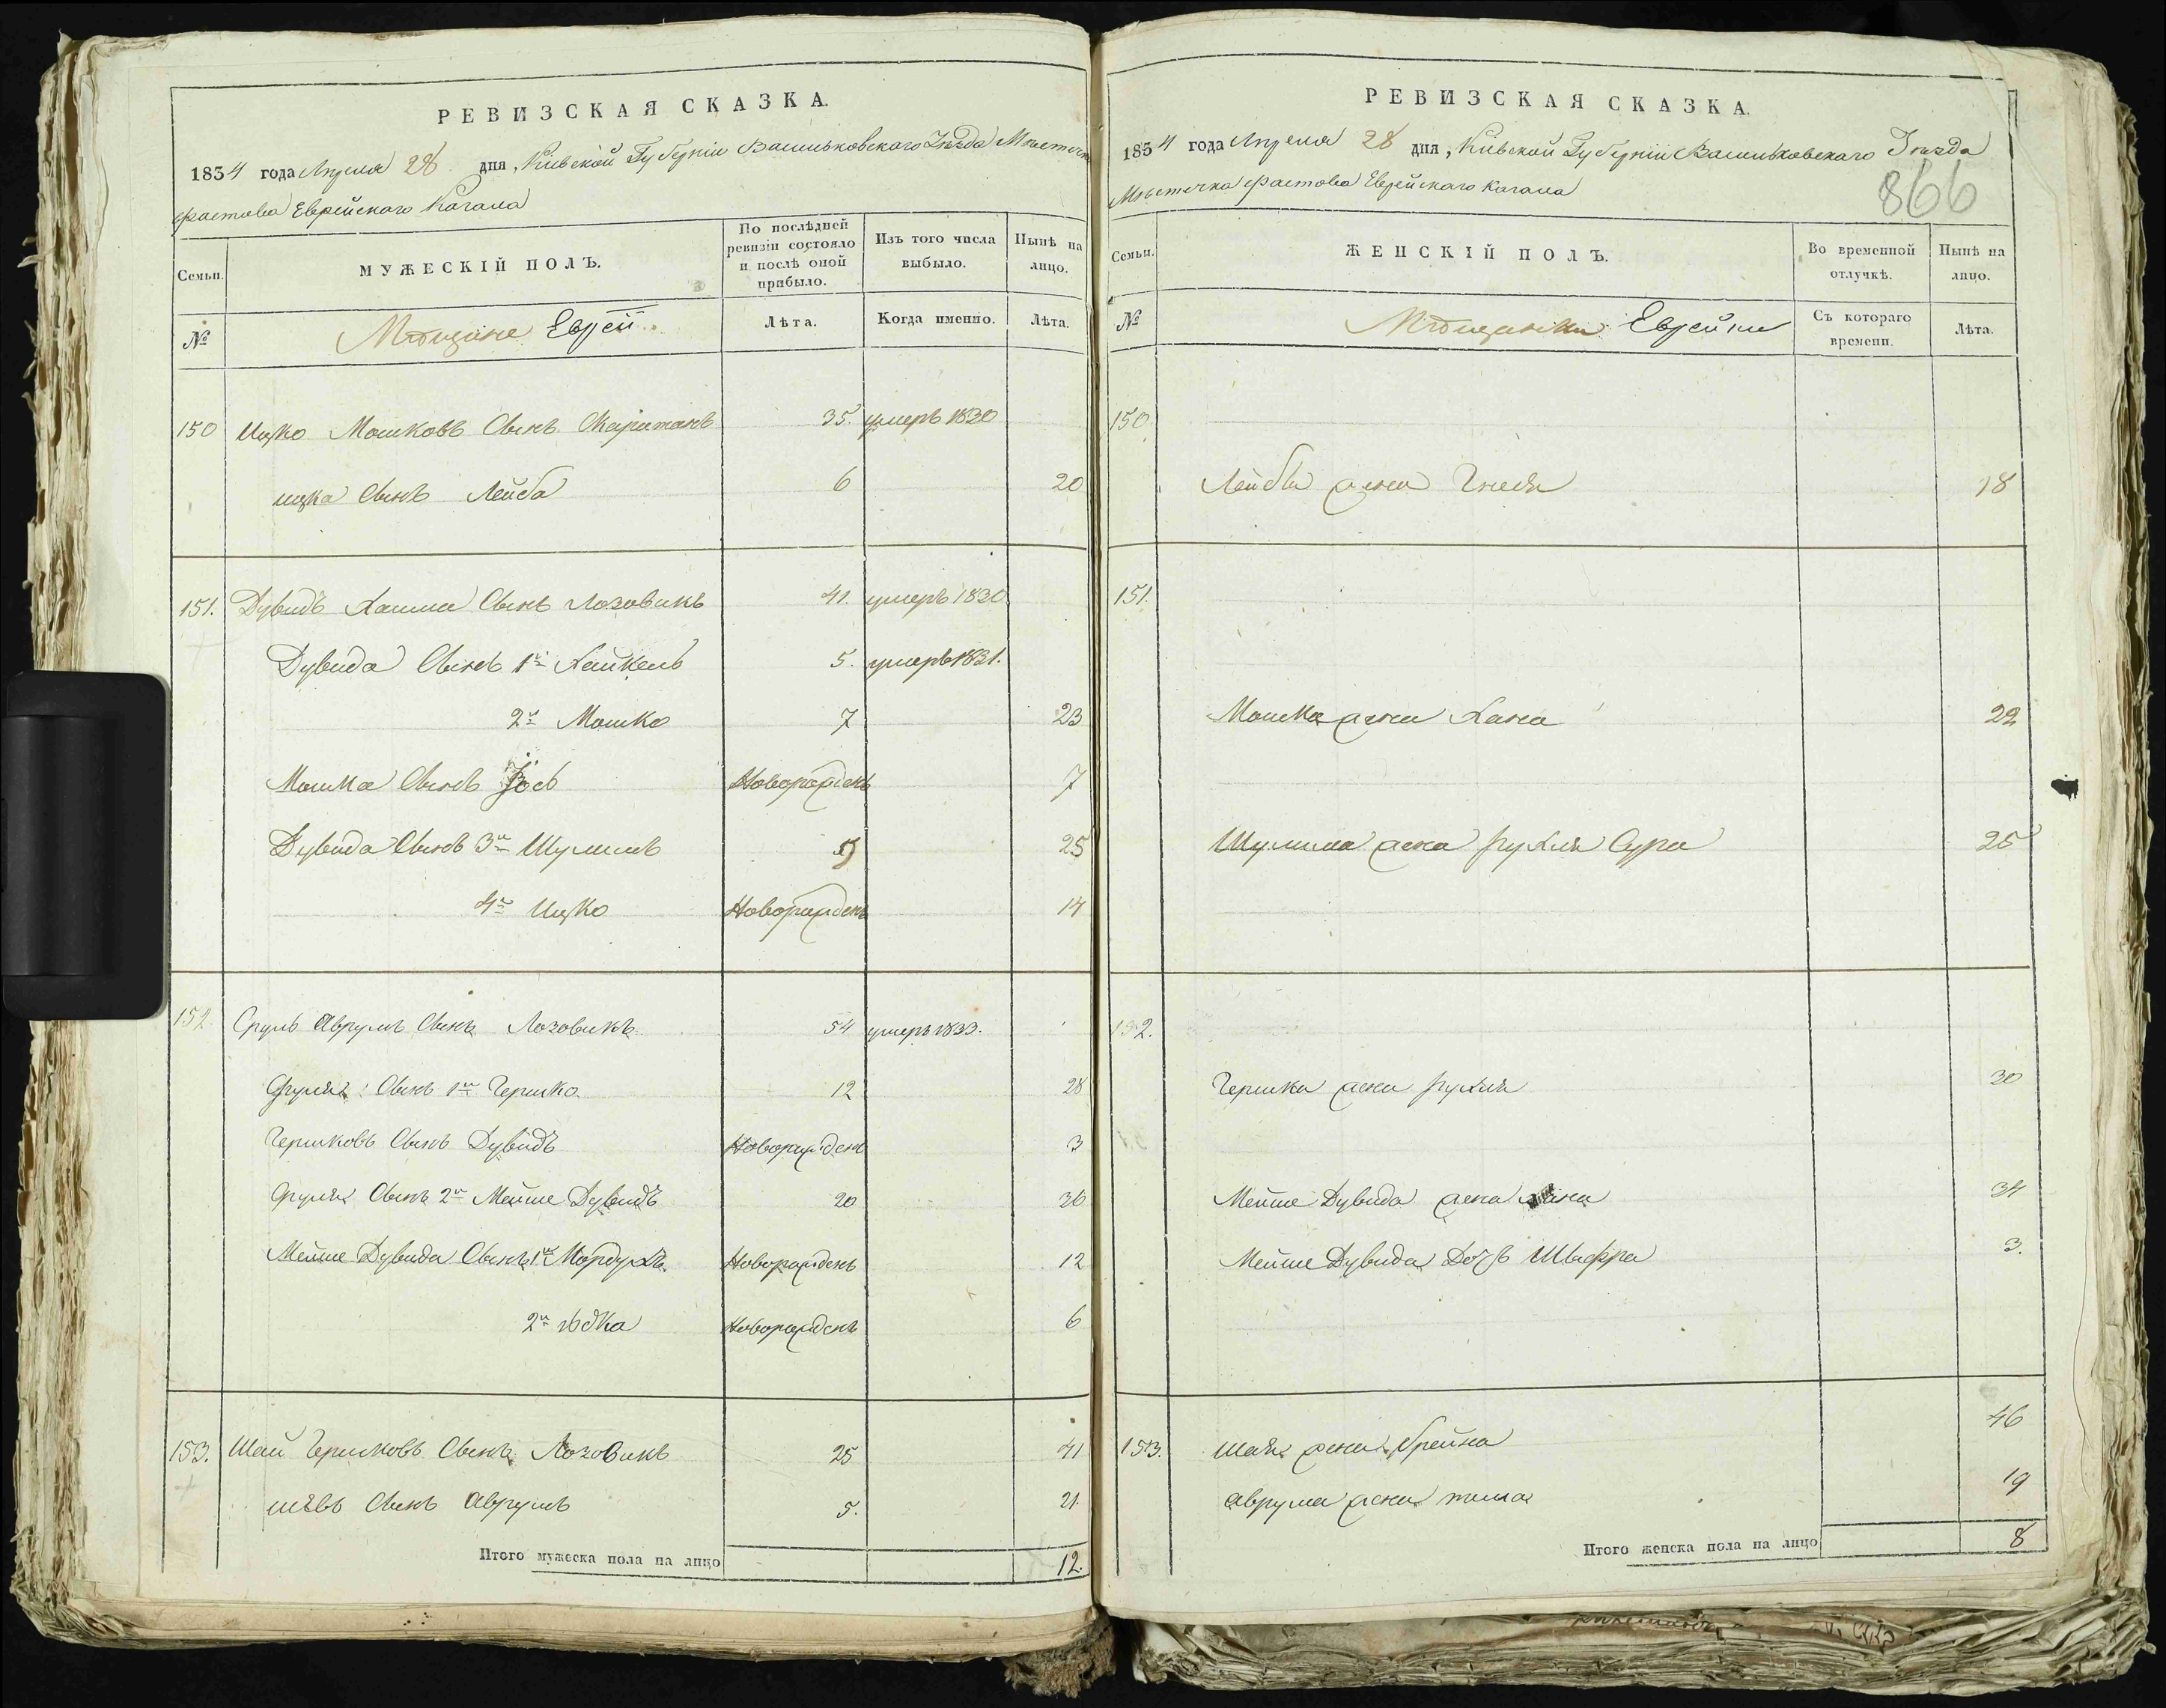 РЕВИЗСКАЯ СКАЗКА.
1834 года Апреля 28 дня, Кіевской Губерніи Васильковского Уѣзда Мѣстечка
Фастова Еврейскаго Кагала
Семьи.
МУЖЕСКІЙ ПОЛЪ.
По послѣдней ревизіи состояло и послѣ оной прибыло.
Изъ того числа выбыло.
Нынѣ на лицо.
№
Мѣщане Еврей
Лѣта.
Когда именно.
Лѣта.
150 Ицко Мошковъ Сынъ 35. умеръ 1830
ицка Сынъ Лейба 6 20
151. Дувидъ Хаима Сынъ Лозовикъ 41. умеръ 1830
Дувида Сынъ 1й Хайкель 5. умеръ 1831.
2й Мошко 7 23
Мошка Сынъ Новорожденъ 7
Дувида Сынъ 3й Шулимъ 25
4й Ицко Новорожденъ 14
152 Сруль Аврумъ Сынъ Лозовикъ 54 умеръ 1833.
Сруля Сынъ 1й Гершко 12 28
Гершковъ Сынъ Дувидъ Новорожденъ 3
Сруля Сынъ 2й Мейше Дувидъ 20 36
Мейше Дувида Сынъ 1й Мордухъ Новорожденъ 12
2й Новорожденъ 6
153. Шай Гершковъ Сынъ Лозовикъ 25 41
Сынъ Аврумъ 5. 21.
Итого мужеска пола на лицо 12.
РЕВИЗСКАЯ СКАЗКА.
1834 года Апреля 28 дня, Кіевской Губерніи Васильковскаго Уѣзда
Мѣстечка Фастова Еврейскаго Кагала
866
Семьи.
ЖЕНСКІЙ ПОЛЪ.
Во временной отлучкѣ.
Нынѣ на лицо.
№
Мѣщанки Еврейки
Съ котораго времени.
Лѣта.
150
Лейбы жена Гнеся 18
151.
Мошка жена Хана 22
Шулима жена Рухля Сура 25
152.
Гершка жена Рухля 30
Мейше Дувида жена 34
Мейше Дувида Дочь Шифра 3.
153. Шая жена Брейна 46
Аврума жена 19
Итого женска пола на лицо 8